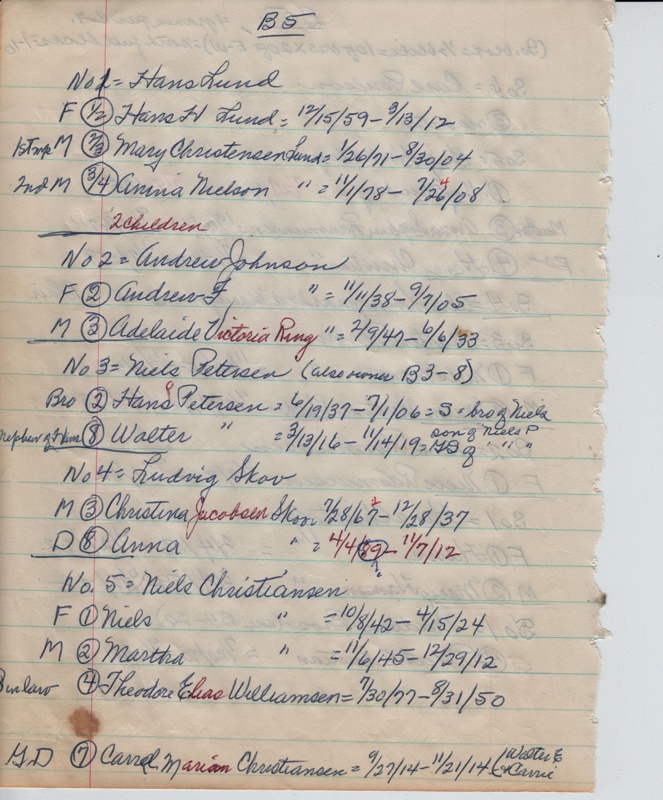 B5
No 1 = Hans Lund
F 1/2 Hans H Lund = 12/15/59 - 3/13/12
1st M 2/3 Mary Christensen Lund = 1/26/71 - 8/30/04
2nd M 3/4 Anina Nielson " = 11/1/78 - 7/26/08
2 children
No 2 = Andrew Johnson
F 2 Andrew F " = 11/11/38 - 9/7/05
M 3 Adelaide Victoria Ring " = 2/9/47 - 6/6/33
No 3 = Niels Petersen (also owner B3-8)
Bro 2 Hans P Petersen = 6/19/37 - 7/1/06 = S = bro of Niels
nephew of Hans 8 Walter " = 3/13/16 - 11/14/19 = son of Niels P
GS of " " "
No 4 = Ludvig Skov
M 3 Christina Jacobsen Skov 7/28/67 - 12/28/37
D 8 Anna " = 4/4/89 - 11/7/12
No. 5 = Niels Christiansen
F 1 Niels " = 10/8/42 - 4/15/24
M 2 Martha " = 11/6/45 - 12/29/12
Sinlaw 4 Theodore Elias Williamsen = 7/30/77 - 8/31/50
GD 7 Carrol Marian Christiansen = 9/27/14 - 11/21/14 (Walter E
+ Carrie